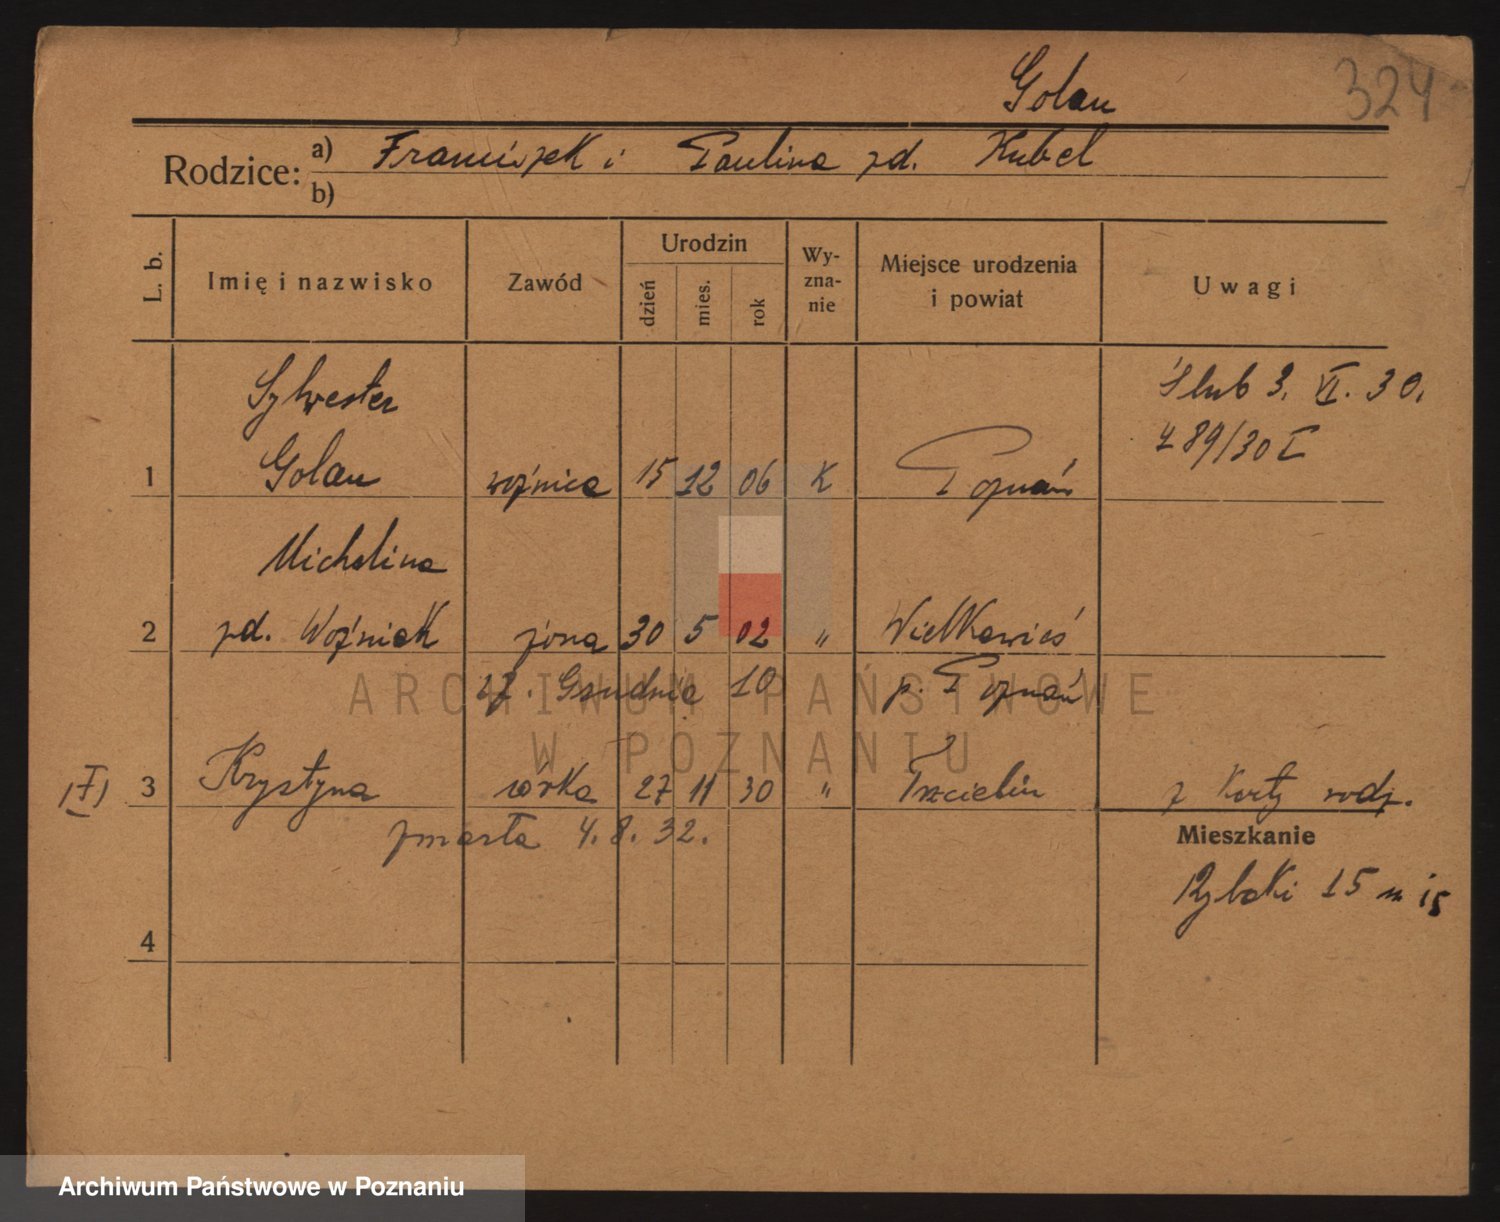 Golau
324
Rodzice: a) Franciszek i Paulina zd. Kubel
b)
L. b.
Imię i nazwisko
Zawód
Urodzin
dzień
mies.
rok
Wy-
zna-
nie
Miejsce urodzenia
i powiat
Uwagi
Sylwester
Ślub 3. VI. 30.
1 Golau woźnica 15 12 06 K Poznań
489/30 I
Michalina
2 zd. Woźniak żona 30 5 02 " Wielkawieś
27. Grudnia 10 p. Poznań
(I) 3 Krystyna córka 27 11 30 " Trzcielin z Karty rodz.
zmarła 4.8.32.
Mieszkanie
Rybaki 15 m 15
4
ARCHIWUM PAŃSTWOWE
W POZNANIU
Archiwum Państwowe w Poznaniu